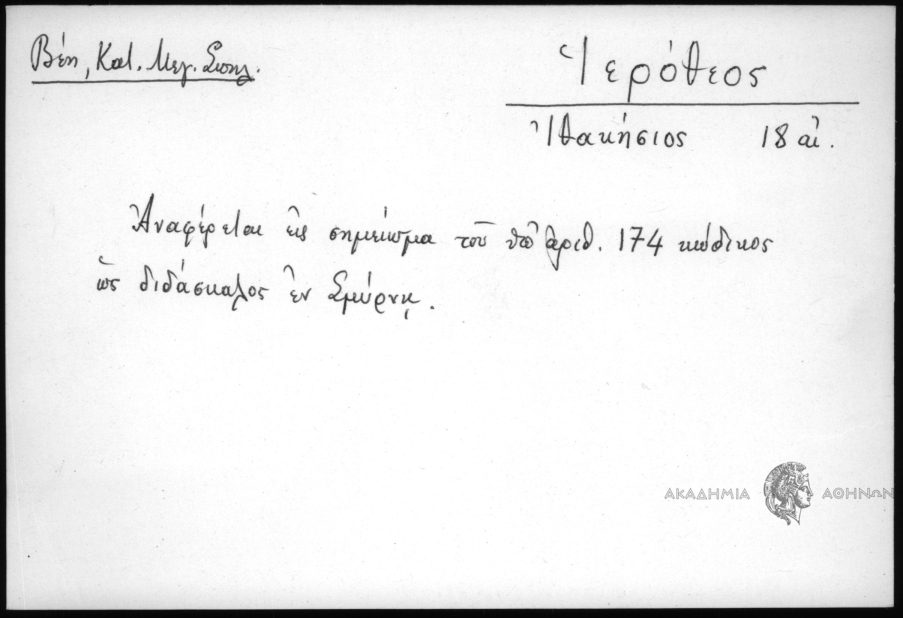 Βέη, Κατ. Μεγ. Σπηλ.
Ἱερόθεος
Ἰθακήσιος 18 αἰ.
Ἀναφέρεται εἰς σημείωμα τοῦ ὑπ' ἀριθ. 174 κώδικος
ὡς διδάσκαλος ἐν Σμύρνῃ.
ΑΚΑΔΗΜΙΑ ΑΘΗΝΩΝ